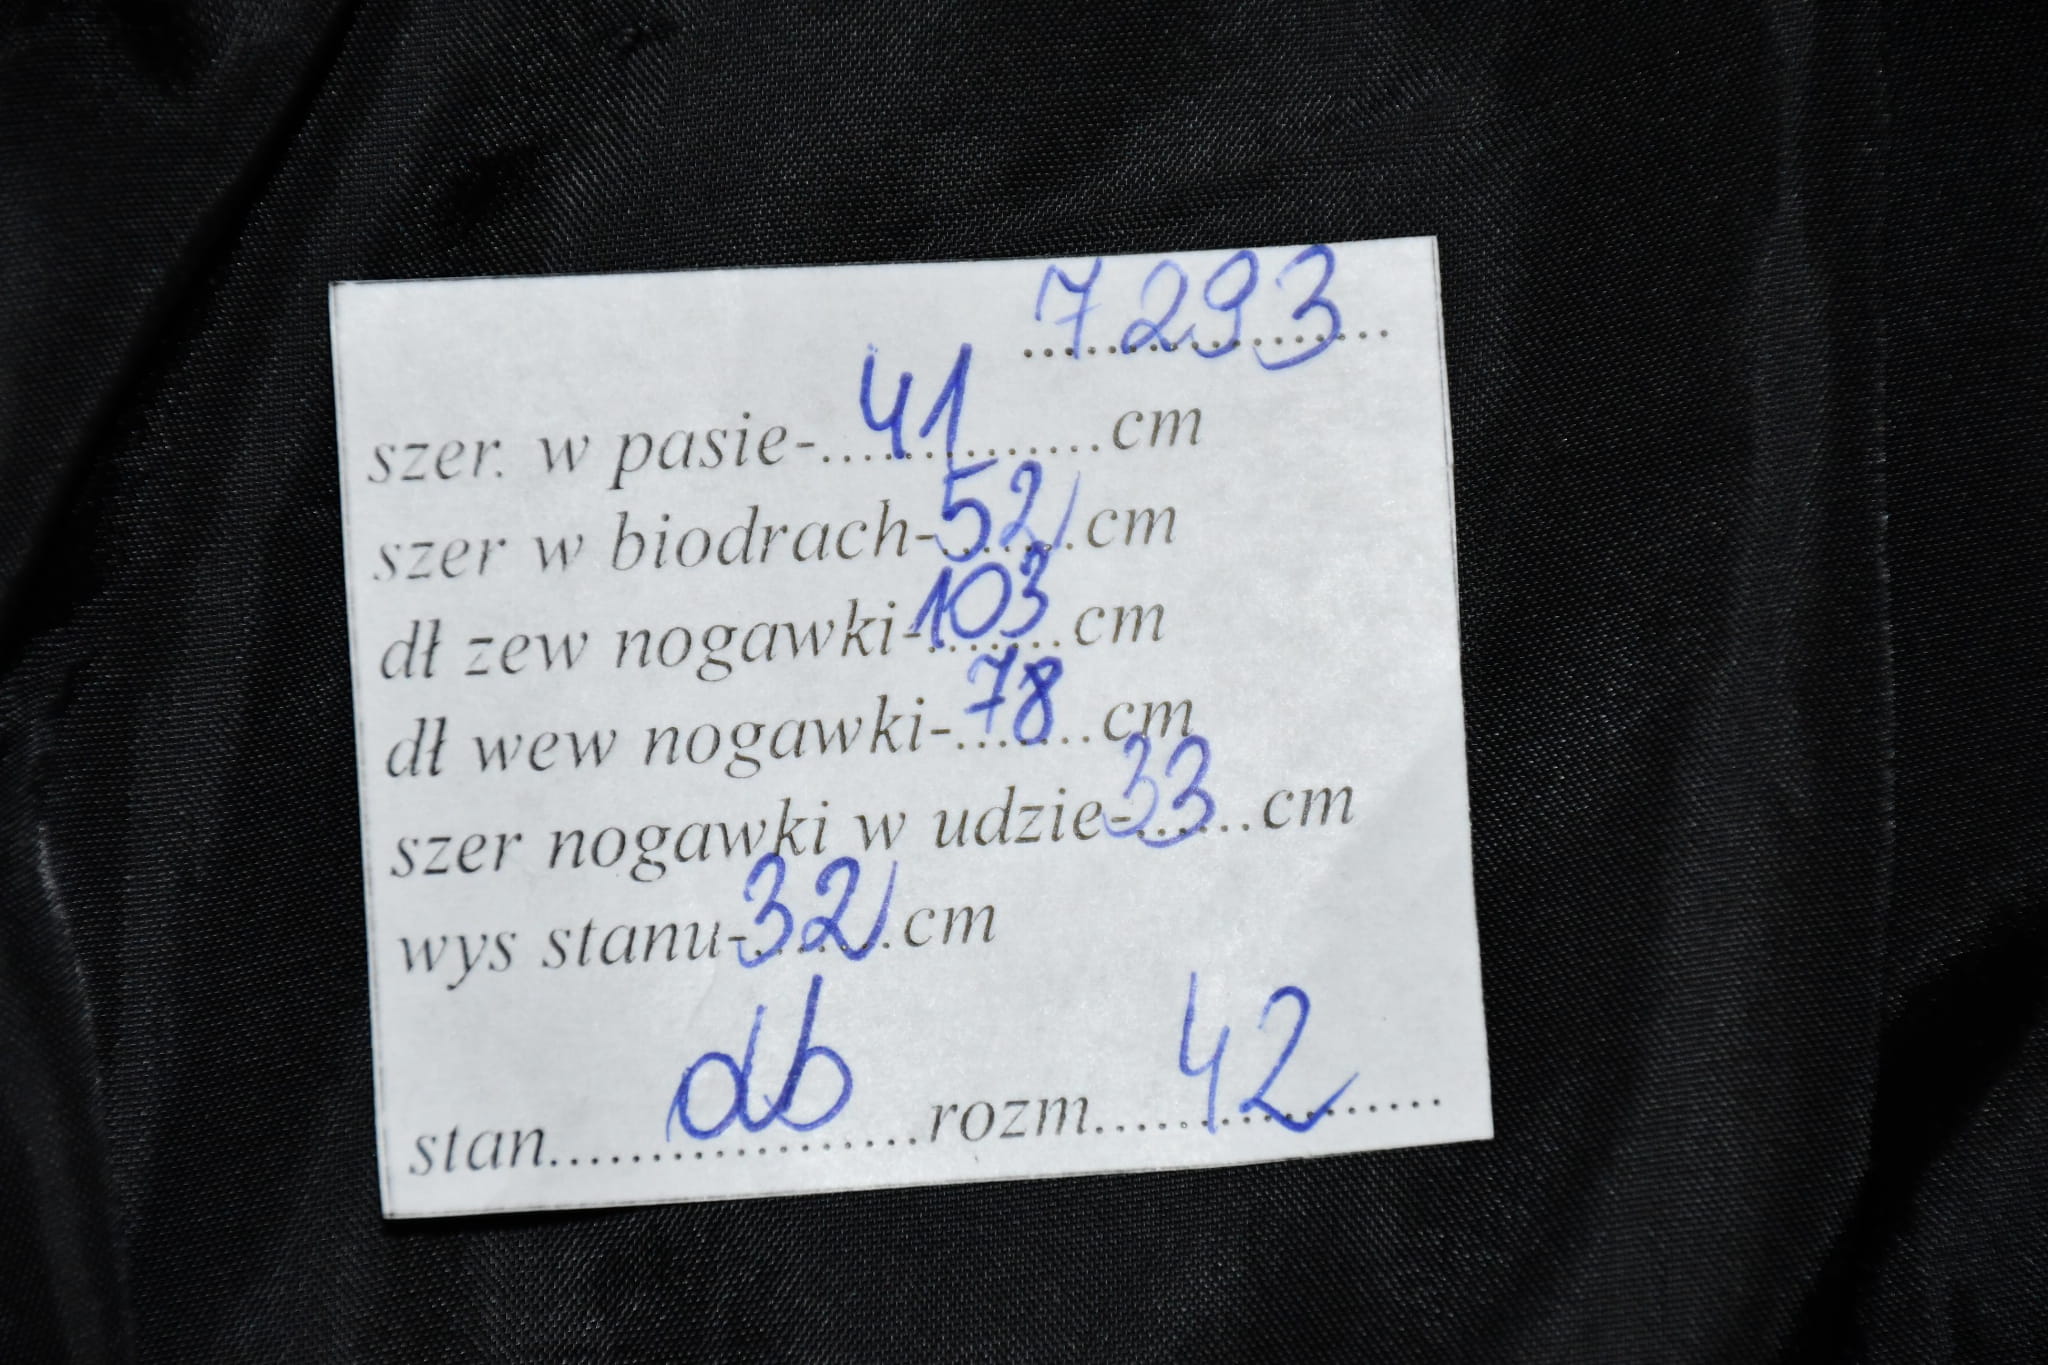 7293
szer. w pasie-..41..cm
szer w biodrach-52.cm
dł zew nogawki-103.cm
dł wew nogawki-78.cm
szer nogawki w udzie-33.cm
wys stanu-32.cm
stan....db....rozm....42....